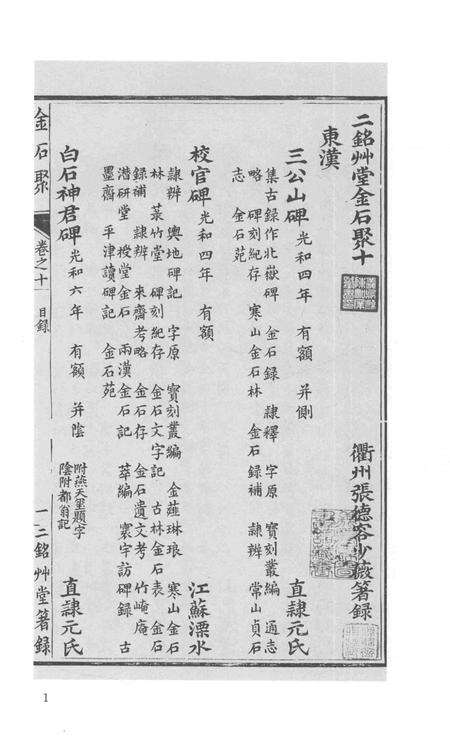 二銘艸堂金石聚十
衢州張德容少薇箸錄
東漢
三公山碑 光和四年 有額 并側 直隷元氏
集古錄作北嶽碑 金石錄 隷釋 字原 寶刻叢編 通志
略 碑刻紀存 寒山金石林 金石錄補 隷辨 常山貞石
志 金石苑
校官碑 光和四年 有額 江蘇溧水
隷辨 輿地碑記 字原 寶刻叢編 金薤琳琅 寒山金石
林 菉竹堂 碑刻紀存 金石文字記 古林金石表 金石
錄補 隷辨 來齋考略 金石存 金石遺文考 竹崦庵
潛研堂 授堂金石 兩漢金石記 萃編 寰宇訪碑錄 古
墨齋 平津讀碑記 金石苑
白石神君碑 光和六年 有額 并陰 附燕天璽題字
陰附都翁記 直隷元氏
金石聚 卷之十 目錄 一 二銘艸堂箸錄
1